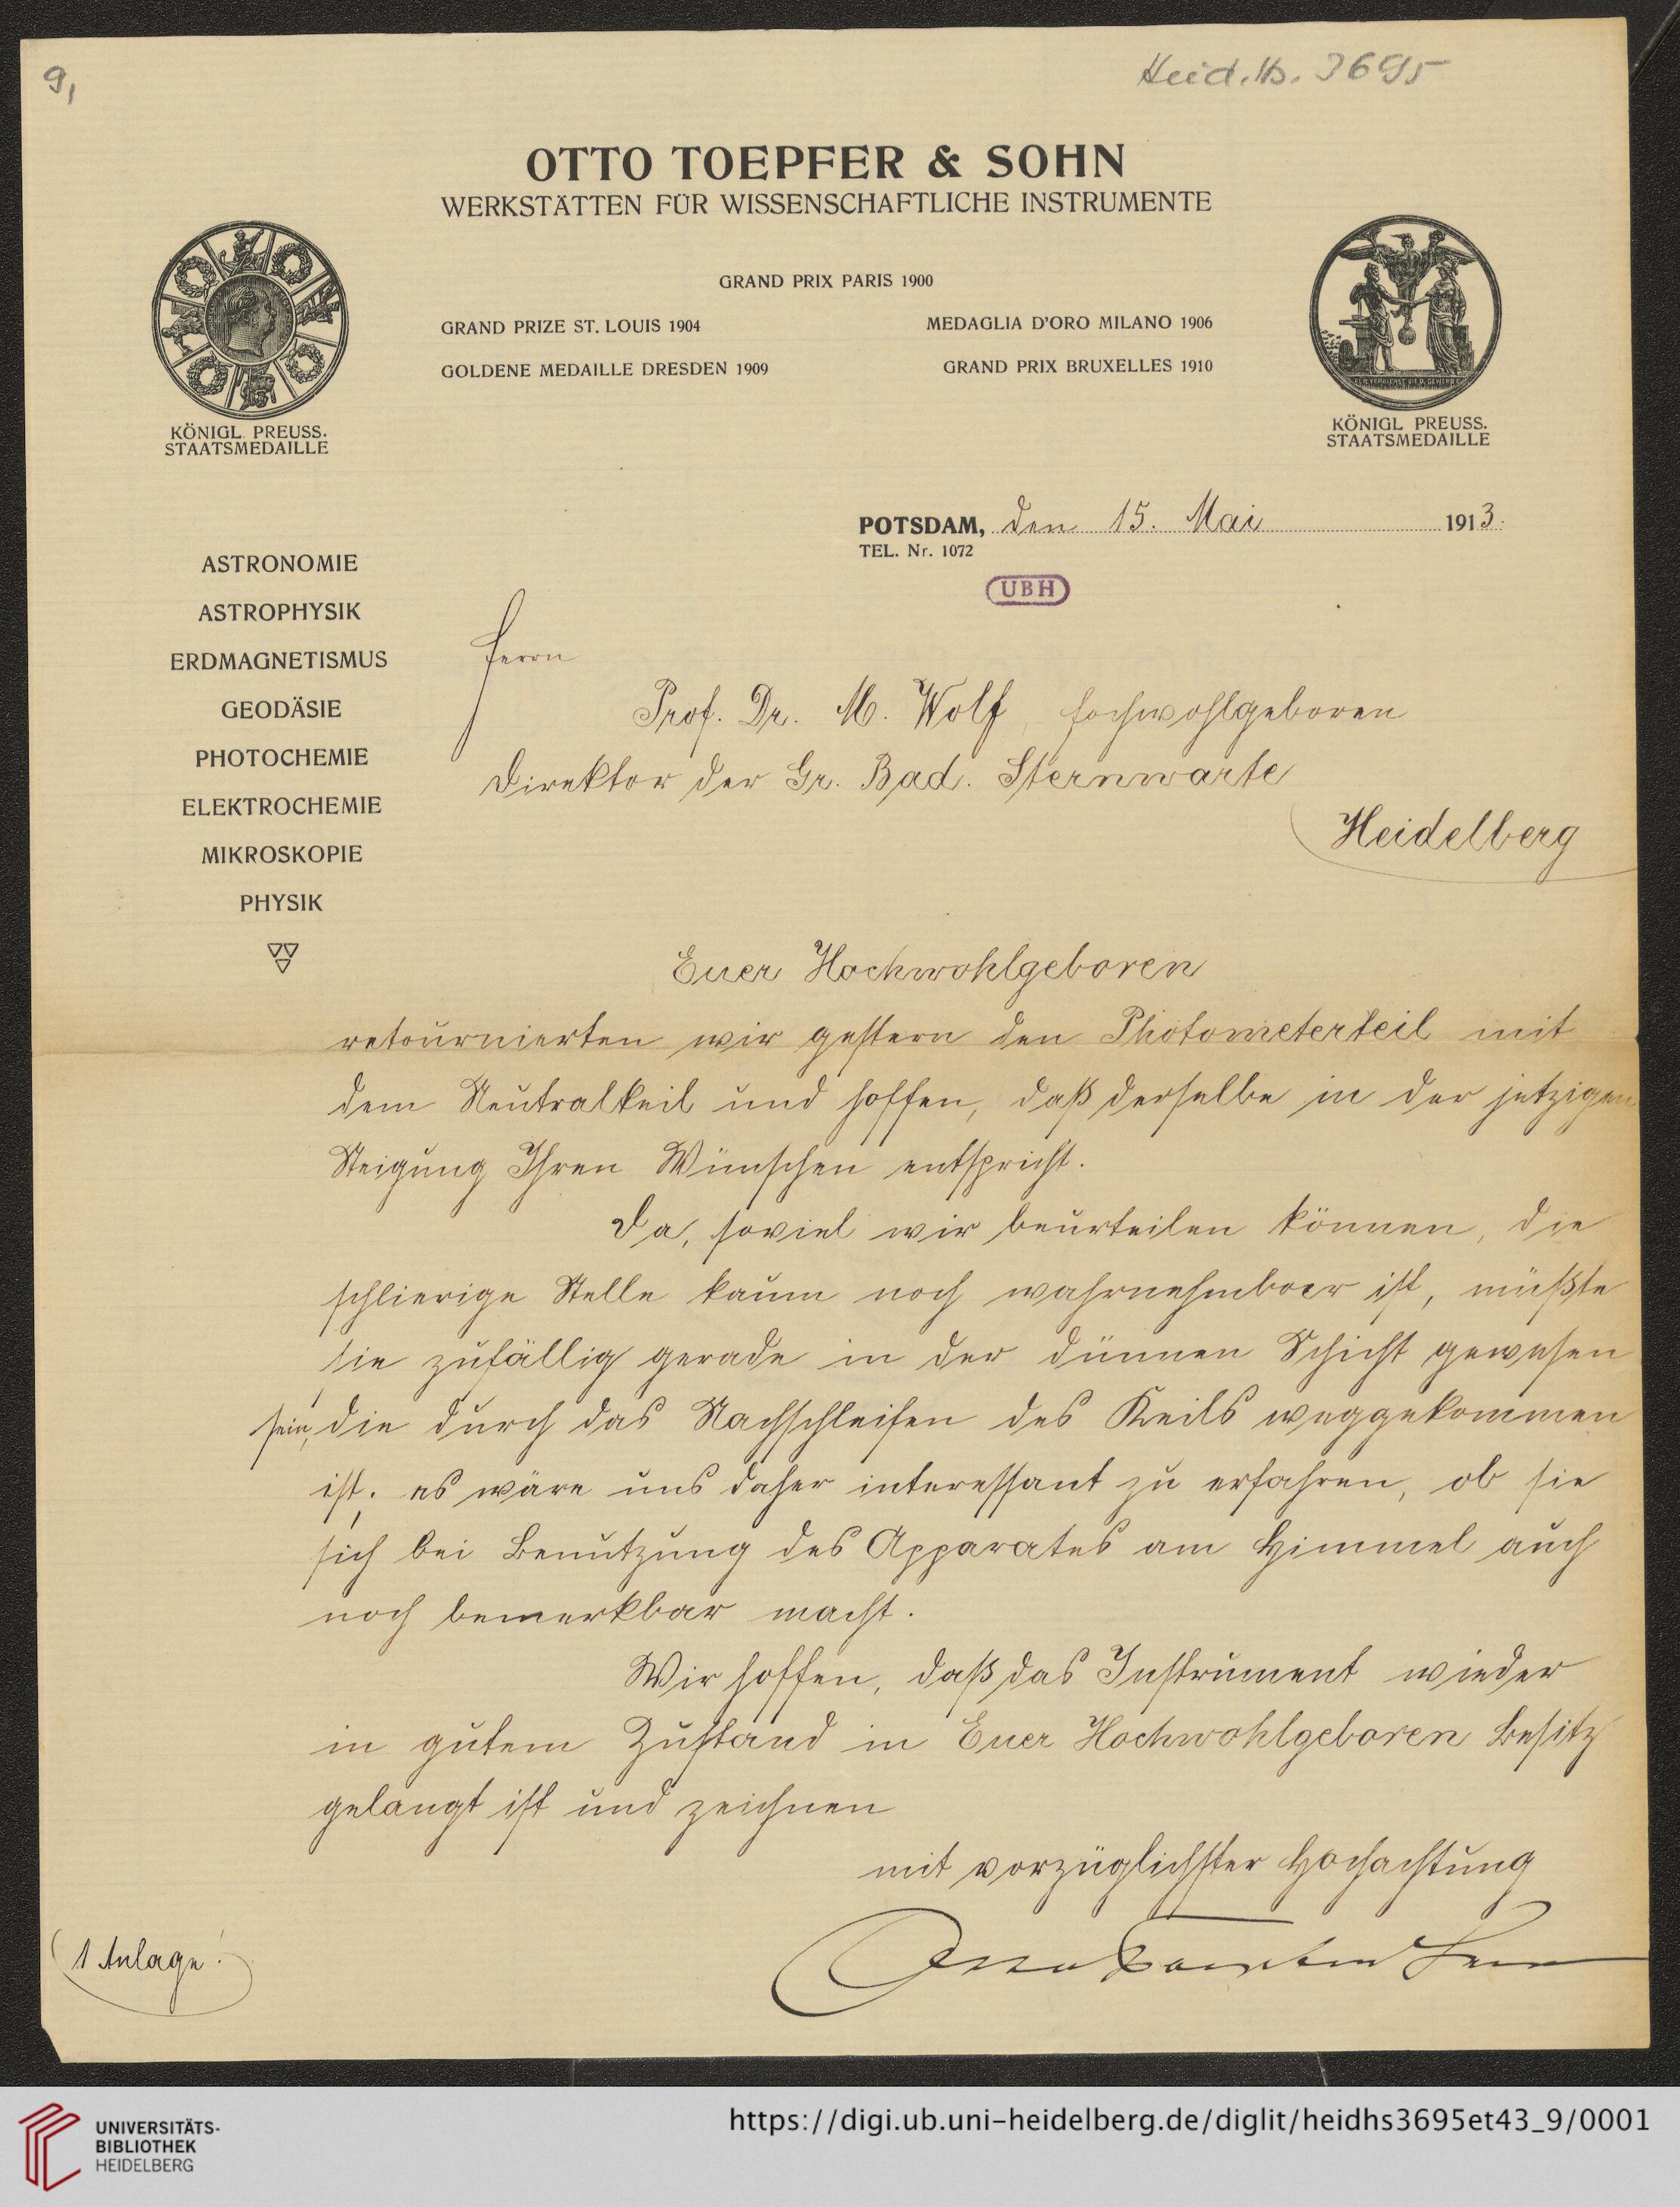 9,
Heid. Hs. 3695
OTTO TOEPFER & SOHN
WERKSTÄTTEN FÜR WISSENSCHAFTLICHE INSTRUMENTE
GRAND PRIX PARIS 1900
GRAND PRIZE ST. LOUIS 1904
MEDAGLIA D'ORO MILANO 1906
GOLDENE MEDAILLE DRESDEN 1909
GRAND PRIX BRUXELLES 1910
KÖNIGL. PREUSS.
STAATSMEDAILLE
KÖNIGL. PREUSS.
STAATSMEDAILLE
POTSDAM, den 15. Mai 1913.
TEL. Nr. 1072
UBH
ASTRONOMIE
ASTROPHYSIK
ERDMAGNETISMUS
GEODÄSIE
PHOTOCHEMIE
ELEKTROCHEMIE
MIKROSKOPIE
PHYSIK
Herrn
Prof. Dr. M. Wolf, Hochwohlgeboren
Direktor der Gr. Bad. Sternwarte
Heidelberg
Euer Hochwohlgeboren
retournierten wir gestern den Photometerteil mit
dem Neutralkeil und hoffen, daß derselbe in der jetzigen
Steigung Ihren Wünschen entspricht.
Da, soviel wir beurteilen können, die
schlierige Stelle kaum noch wahrnehmbar ist, müßte
sie zufällig gerade in der dünnen Schicht gewesen
sein, die durch das Nachschleifen des Keils weggekommen
ist. es wäre uns daher interessant zu erfahren, ob sie
sich bei Benutzung des Apparates am Himmel auch
noch bemerkbar macht.
Wir hoffen, daß das Instrument wieder
in gutem Zustand in Euer Hochwohlgeboren Besitz
gelangt ist und zeichnen
mit vorzüglichster Hochachtung
Otto Toepfer & Sohn
1 Anlage!
UNIVERSITÄTS-
BIBLIOTHEK
HEIDELBERG
https://digi.ub.uni-heidelberg.de/diglit/heidhs3695et43_9/0001